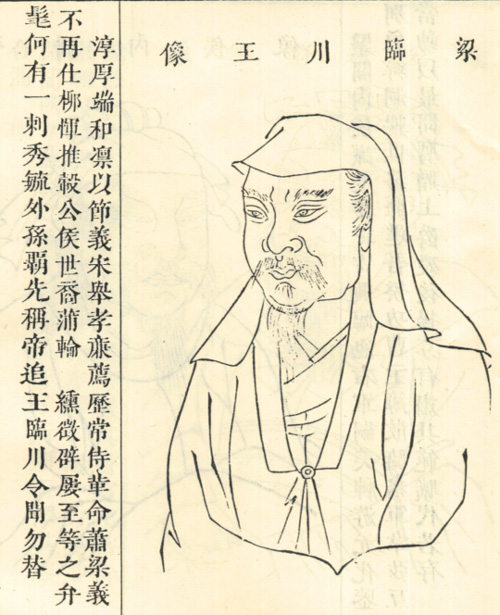 梁臨川王像
淳厚端和凛以節義宋舉孝亷薦歷常侍華命蕭梁義
不再仕柳惲推轂公侯世裔蒲輪 纁徵辟屡至等之弁
髦何有一刺秀毓外孫覇先稱帝追王臨川令聞勿替